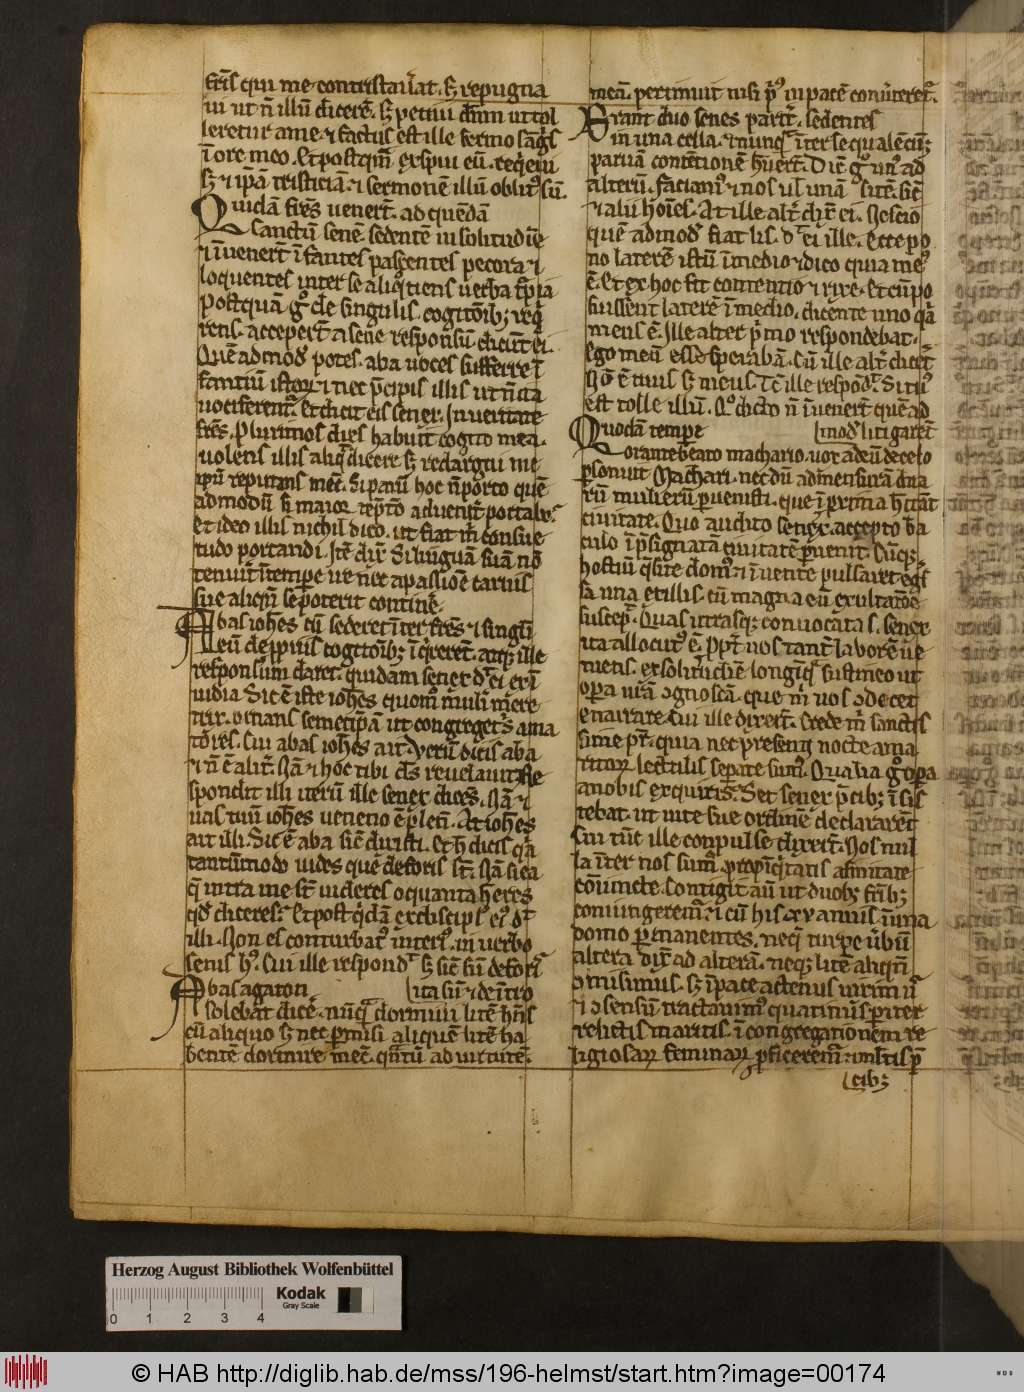 fr̄is qui me contristauerat. sꝫ repugna
ui ut n̄ illū dicerē. sꝫ petiui dn̄m ut tol
leretur a me. ⁊ factus est ille sermo sāgs
ī ore meo. Et postqm̄ expui eū. reqeui
sꝫ ⁊ ip̄ā tristiciā. ⁊ sermonē illū oblitꝰ sū.
Quidā fr̄es uenert̄. ad quēdā
sanctū senē. sedentē in solitudīe
⁊ īuenert̄ īfantes pascentes pecora ⁊
loquentes inter se aliqͦtiens uerba t̄pia
Postquā gͦ de singulis. cogitōībꝫ req̄
rens. accepert̄ a sene responsū. dicūt ei.
Quēadmodū potes. aba uoces sufferre ī
fantiū istoꝝ. ⁊ nec p̄cipis illis ut n̄ ita
uociferent̄. Et dicit eis senex. In ueritate
fr̄es. Plurimos dies habui cogito mea.
uolens illis aliqͥd dicere sꝫ redargui me
ip̄m reputans mec̄. Si parū hoc n̄ porto quē
admodū si maior tēpto aduenit portabo.
Et ideo illis nichil dico. ut fiat m̄ consue
tudo portandi. Itē dix̄. Si linguā suā nō
tenuit̄ ī tempore ire nec a passiōe carnis
sue aliqn̄ se poterit continē.
Abas ioh̄es cū sederet īter fr̄es. ⁊ singuli
eū de ppriis cogitōībꝫ īqͥrerēt. atqꝫ ille
responsum daret. quidam senex dͨ ei ex ī
uidia. Sic ē iste ioh̄es quom̄ mulier m̄ere
trix. ornans semetip̄ā ut congreget s̄ ama
tōres. Cui abas ioh̄es ait. Uerū dicis aba
⁊ n̄ ē alit̄. Nā ⁊ hoc tibi ds̄ reuelauit. Re
spondit illi iterū ille senex dicēs. Nā ⁊
uas tuū ioh̄es ueneno ē plenū. At ioh̄es
ait illi. Sic ē aba sic̄ dixisti. Et h̄ dicis qͥa
tantūmodo uides que deforis st̄. Nā si ea
q̄ intra me st̄ uideres o quanta heres
qd̄ diceres. Et post qͥdā ex discipl̄ eiꝰ dͨ
illi. Non es conturbatꝰ interiꝰ. in uerbo
senis hͥꝰ. Cui ille respond̄. sꝫ sic̄ sū deforis
Abas agaton ita sū ⁊ deītro
solebat dicē. nūqͣ dormiui litē hn̄s
cū aliquo sꝫ nec permisi aliquē litē ha
bentē dormire mec̄. qn̄tū ad uirtutē
meā. pertinuit nisi pͥꝰ in pacē conūteret̄.
Erant duo senes paritr̄. sedentes
in una cella. ⁊ nunqͣ īter se qualēcūqꝫ
paruā contentionē huert̄. Dic̄ gͦ unꝰ ad
alterū. faciamꝰ ⁊ nos ul̄ unā litē. sic̄
⁊ alii hoīes. At ille alt̄ dix̄ ei. Nescio
quēadmodū fiat lis. dͨ ei ille. Ecce po
no laterē istū īmedio ⁊ dico quia meꝰ
ē. Et ex hoc fit contentio ⁊ rixe. Et cū po
suissent laterē īmedio. dicente uno qͥa
meus ē. Ille alter pͥmo respondebat.
Ego meū esse sperabā. Cū ille alt̄ dicet̄
Nō ē tuus sꝫ meus. Tc̄ ille respōd̄. Si tuꝰ
est tolle illū. Qͦ dicto n̄ īuenert̄ quēad
Quodā tempore modū litigarent̄
orante beato machario. uox ad eū de celo
psonuit Machari. necdū ad mensurā dua
rū mulierū puenisti. que ī proxima hitāt
ciuitate. Quo audito senex. accepto ba
culo īpsignatā ciuitatē puenit. Cūqꝫ
hostiū qͥsite domꝰ ⁊ īuente pulsaret. egͥssa
sā una ex illis. cū magna eū exultatōe
suscep̄. Quas utrasqꝫ conuocatas. senex
ita allocutꝰ ē. Ppt̄ uos tant̄ laborē ue
niens. ex solitudinē longīqͣ sustineo ut
opera ur̄a ꝯgnoscā. que m̄ uos ꝯdecet
enarrare. Cui ille dixert̄. Crede m̄ sanctis
sime pr̄. quia nec presenti nocte a ma
ritoꝝ lectulis separate sumꝰ. Qualia gͦ opa
a nobis exquiris. Set senex p̄cibꝫ īsis
tebat. ut uite sue ordinē declararent
Cui tūc ille compulse dixert̄. Nos nul
la īter nos sumꝰ. propīqͥtatis afinitate
cōiuncte. Contigit aūt ut duobꝫ fr̄ibꝫ
coniungeremꝰ. ⁊ cū his xv annis ī una
domo pmanentes. neqꝫ turpe ūbū
altera dix̄ ad alterā. neqꝫ litē aliqn̄
ꝯmisimus. sꝫ ī pace actenus uiximꝰ
⁊ ꝯsensū tractauimꝰ quatinus pariter
relictis maritis. ī congregationem re
ligiosaꝝ feminaꝝ pficeremꝰ. ⁊ multis p̄
cibꝫ
Herzog August Bibliothek Wolfenbüttel
Kodak
Gray Scale
0 1 2 3 4
© HAB http://diglib.hab.de/mss/196-helmst/start.htm?image=00174